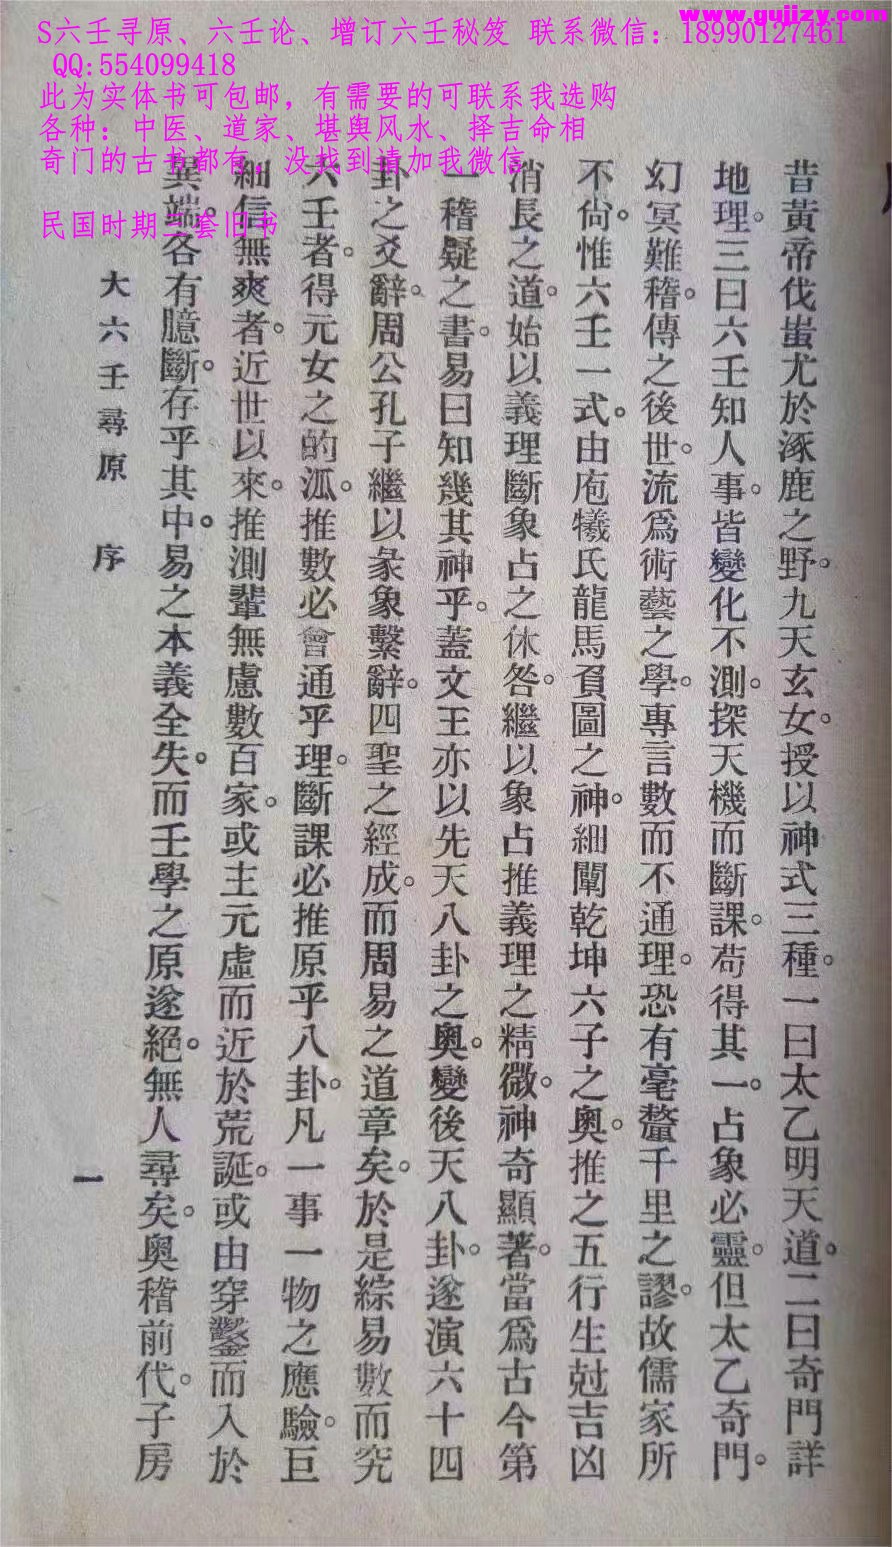 www.gujizy.com
S六壬寻原、六壬论、增订六壬秘笈 联系微信：18990127461
QQ:554099418
此为实体书可包邮，有需要的可联系我选购
各种：中医、道家、堪舆风水、择吉命相
奇门的古书都有，没找到请加我微信
民国时期三套旧书
昔黃帝伐蚩尤於涿鹿之野。九天玄女。授以神式三種。一曰太乙明天道。二曰奇門詳
地理。三曰六壬知人事。皆變化不測。探天機而斷課。苟得其一。占象必靈。但太乙奇門。
幻冥難稽。傳之後世。流爲術藝之學。專言數而不通理。恐有毫釐千里之謬。故儒家所
不尙。惟六壬一式。由庖犧氏龍馬負圖之神。細闡乾坤六子之奧。推之五行生尅吉凶
消長之道。始以義理斷象占之休咎。繼以象占推義理之精微。神奇顯著。當爲古今第
一稽疑之書。易曰知幾其神乎。蓋文王亦以先天八卦之奧。變後天八卦。遂演六十四
卦之爻辭。周公孔子繼以彖象繫辭。四聖之經成。而周易之道章矣。於是綜易數而究
六壬者。得元女之的派。推數必會通乎理。斷課必推原乎八卦。凡一事一物之應驗。巨
細信無爽者。近世以來。推測輩無慮數百家。或主元虛而近於荒誕。或由穿鑿而入於
異端。各有臆斷。存乎其中。易之本義全失。而壬學之原遂絕。無人尋矣。奧稽前代。子房
大六壬尋原 序
一